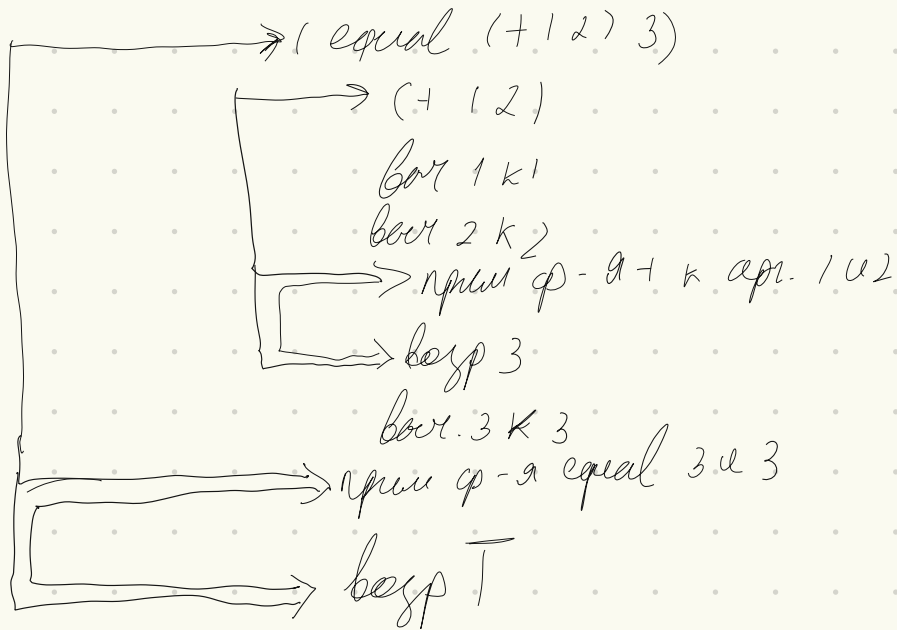 ( equal (+ 1 2) 3)
(+ 1 2)
выч 1 к 1
выч 2 к 2
прим ф-я + к арг. 1 и 2
возвр 3
выч. 3 к 3
прим ф-я equal 3 и 3
возвр T